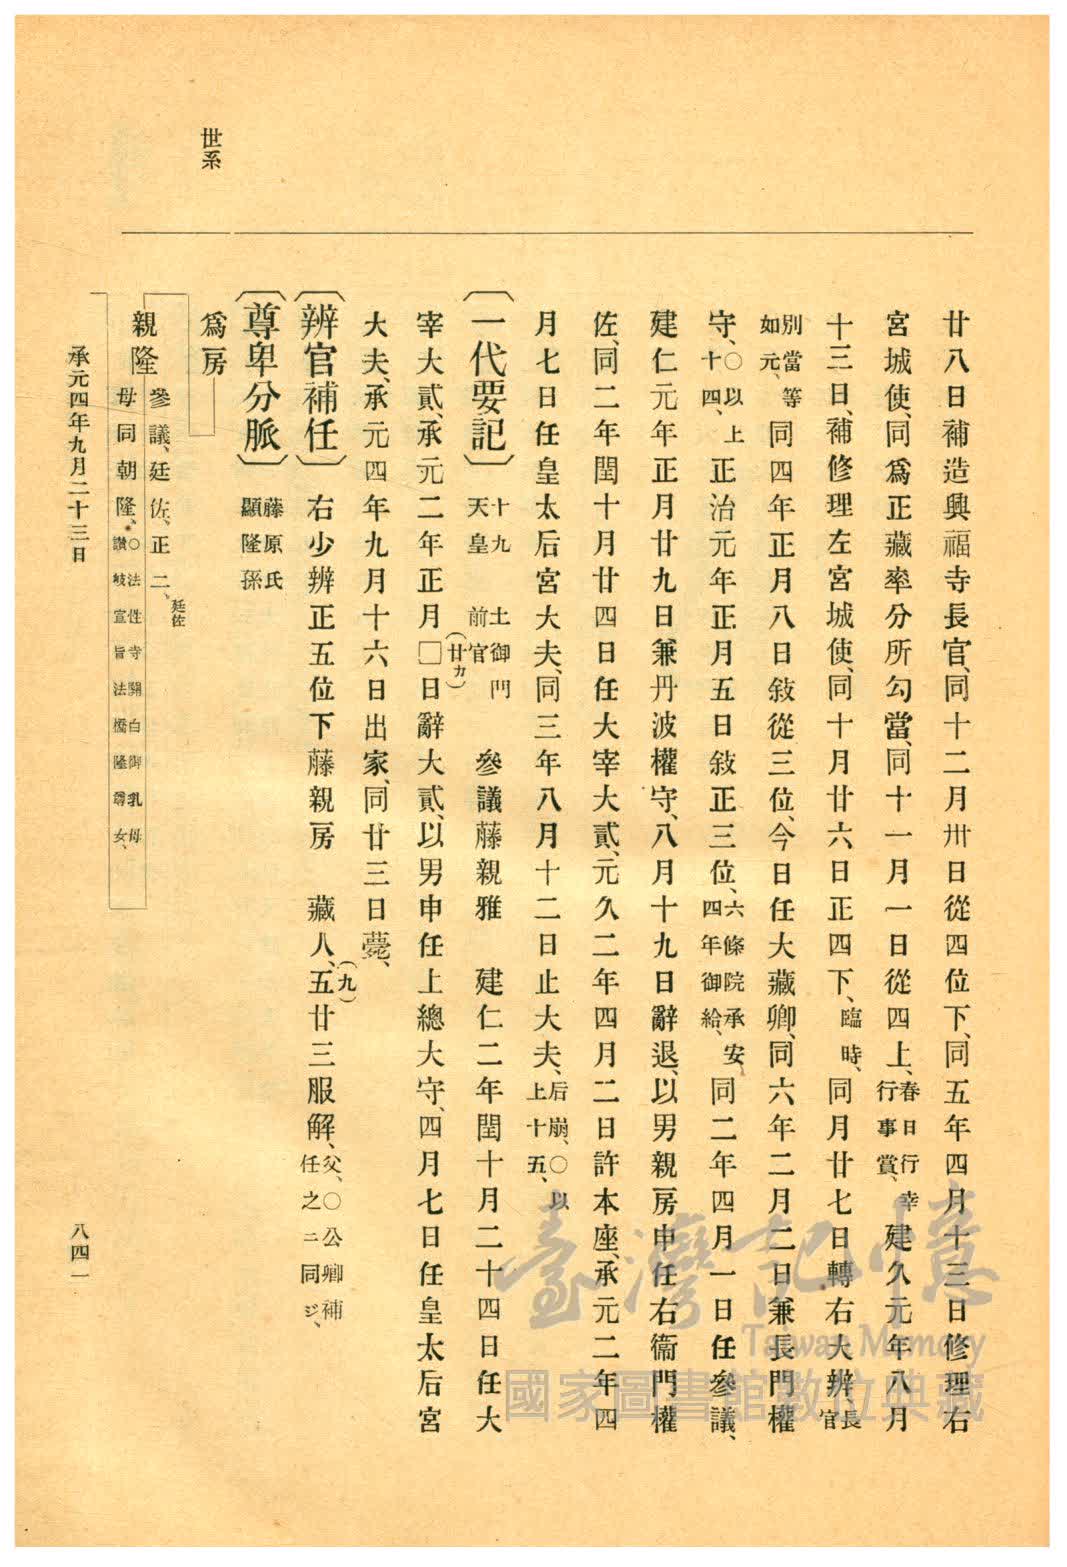 廿八日補造興福寺長官、同十二月卅日從四位下、同五年四月十三日修理右
宮城使、同爲正藏率分所勾當、同十一月一日從四上、春日行幸行事賞、建久元年八月
十三日、補修理左宮城使、同十月廿六日正四下、臨時、同月廿七日轉右大辨、長官
別當等如元、同四年正月八日敍從三位、今日任大藏卿、同六年二月二日兼長門權
守、〇以上十四、正治元年正月五日敍正三位、六條院承安四年御給、同二年四月一日任參議、
建仁元年正月廿九日兼丹波權守、八月十九日辭退、以男親房申任右衞門權
佐、同二年閏十月廿四日任大宰大貳、元久二年四月二日許本座、承元二年四
月七日任皇太后宮大夫、同三年八月十二日止大夫、后崩、〇以上十五、
〔一代要記〕十九 土御門天皇 前官 參議藤親雅 建仁二年閏十月二十四日任大
宰大貳、承元二年正月□日辭大貳、以男申任上總大守、四月七日任皇太后宮
(廿カ)
大夫、承元四年九月十六日出家、同廿三日薨、
〔辨官補任〕右少辨正五位下藤親房 藏人、五廿三服解、父、〇公卿補任之ニ同ジ、
(九)
世系
〔尊卑分脈〕藤原氏顯隆孫
爲房
親隆
參議、廷佐、正二、
廷佐
母同朝隆、〇法性寺關白御乳母讚岐宣旨法橋隆尊女、
承元四年九月二十三日
八四一
臺灣記憶
Taiwan Memory
國家圖書館數位典藏